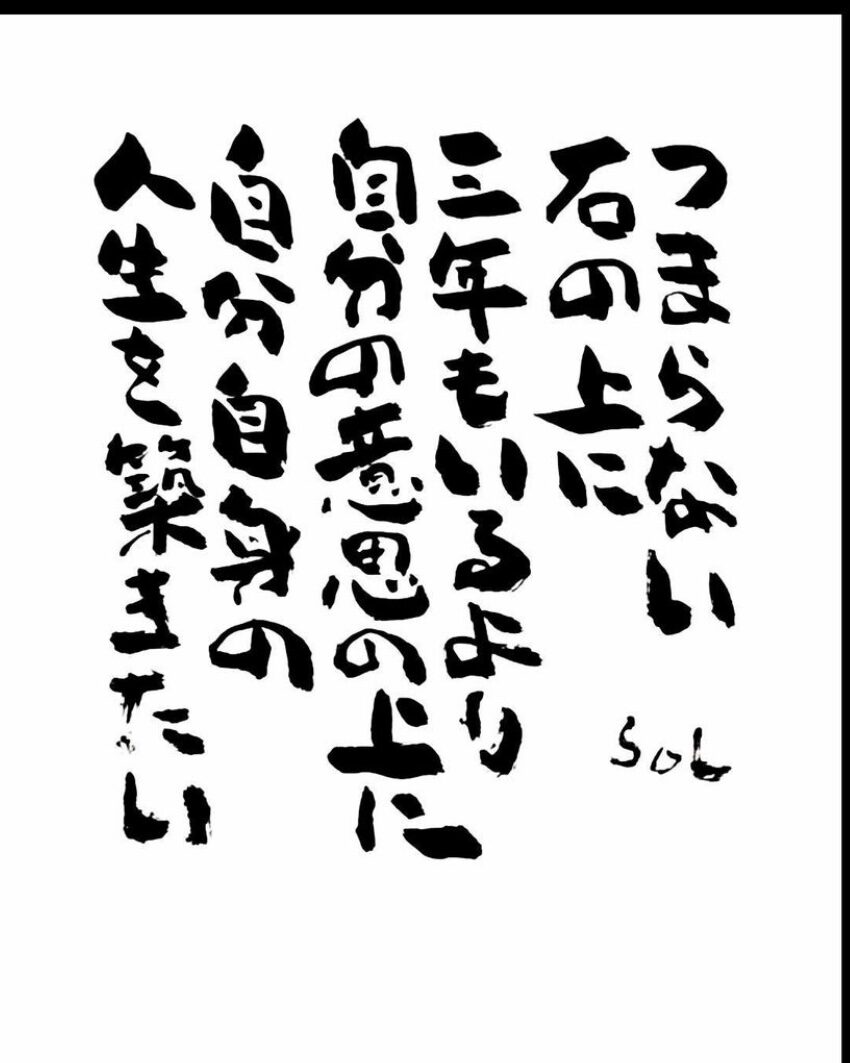 つまらない
石の上に
三年もいるより
自分の意思の上に
自分自身の
人生を築きたい
SOL